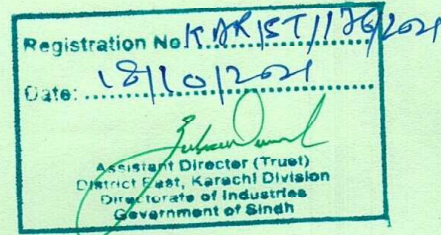 Registration No KAR/ST/176/2021
Date: 18/10/2021
Assistant Director (Trust)
District East, Karachi Division
Directorate of Industries
Government of Sindh